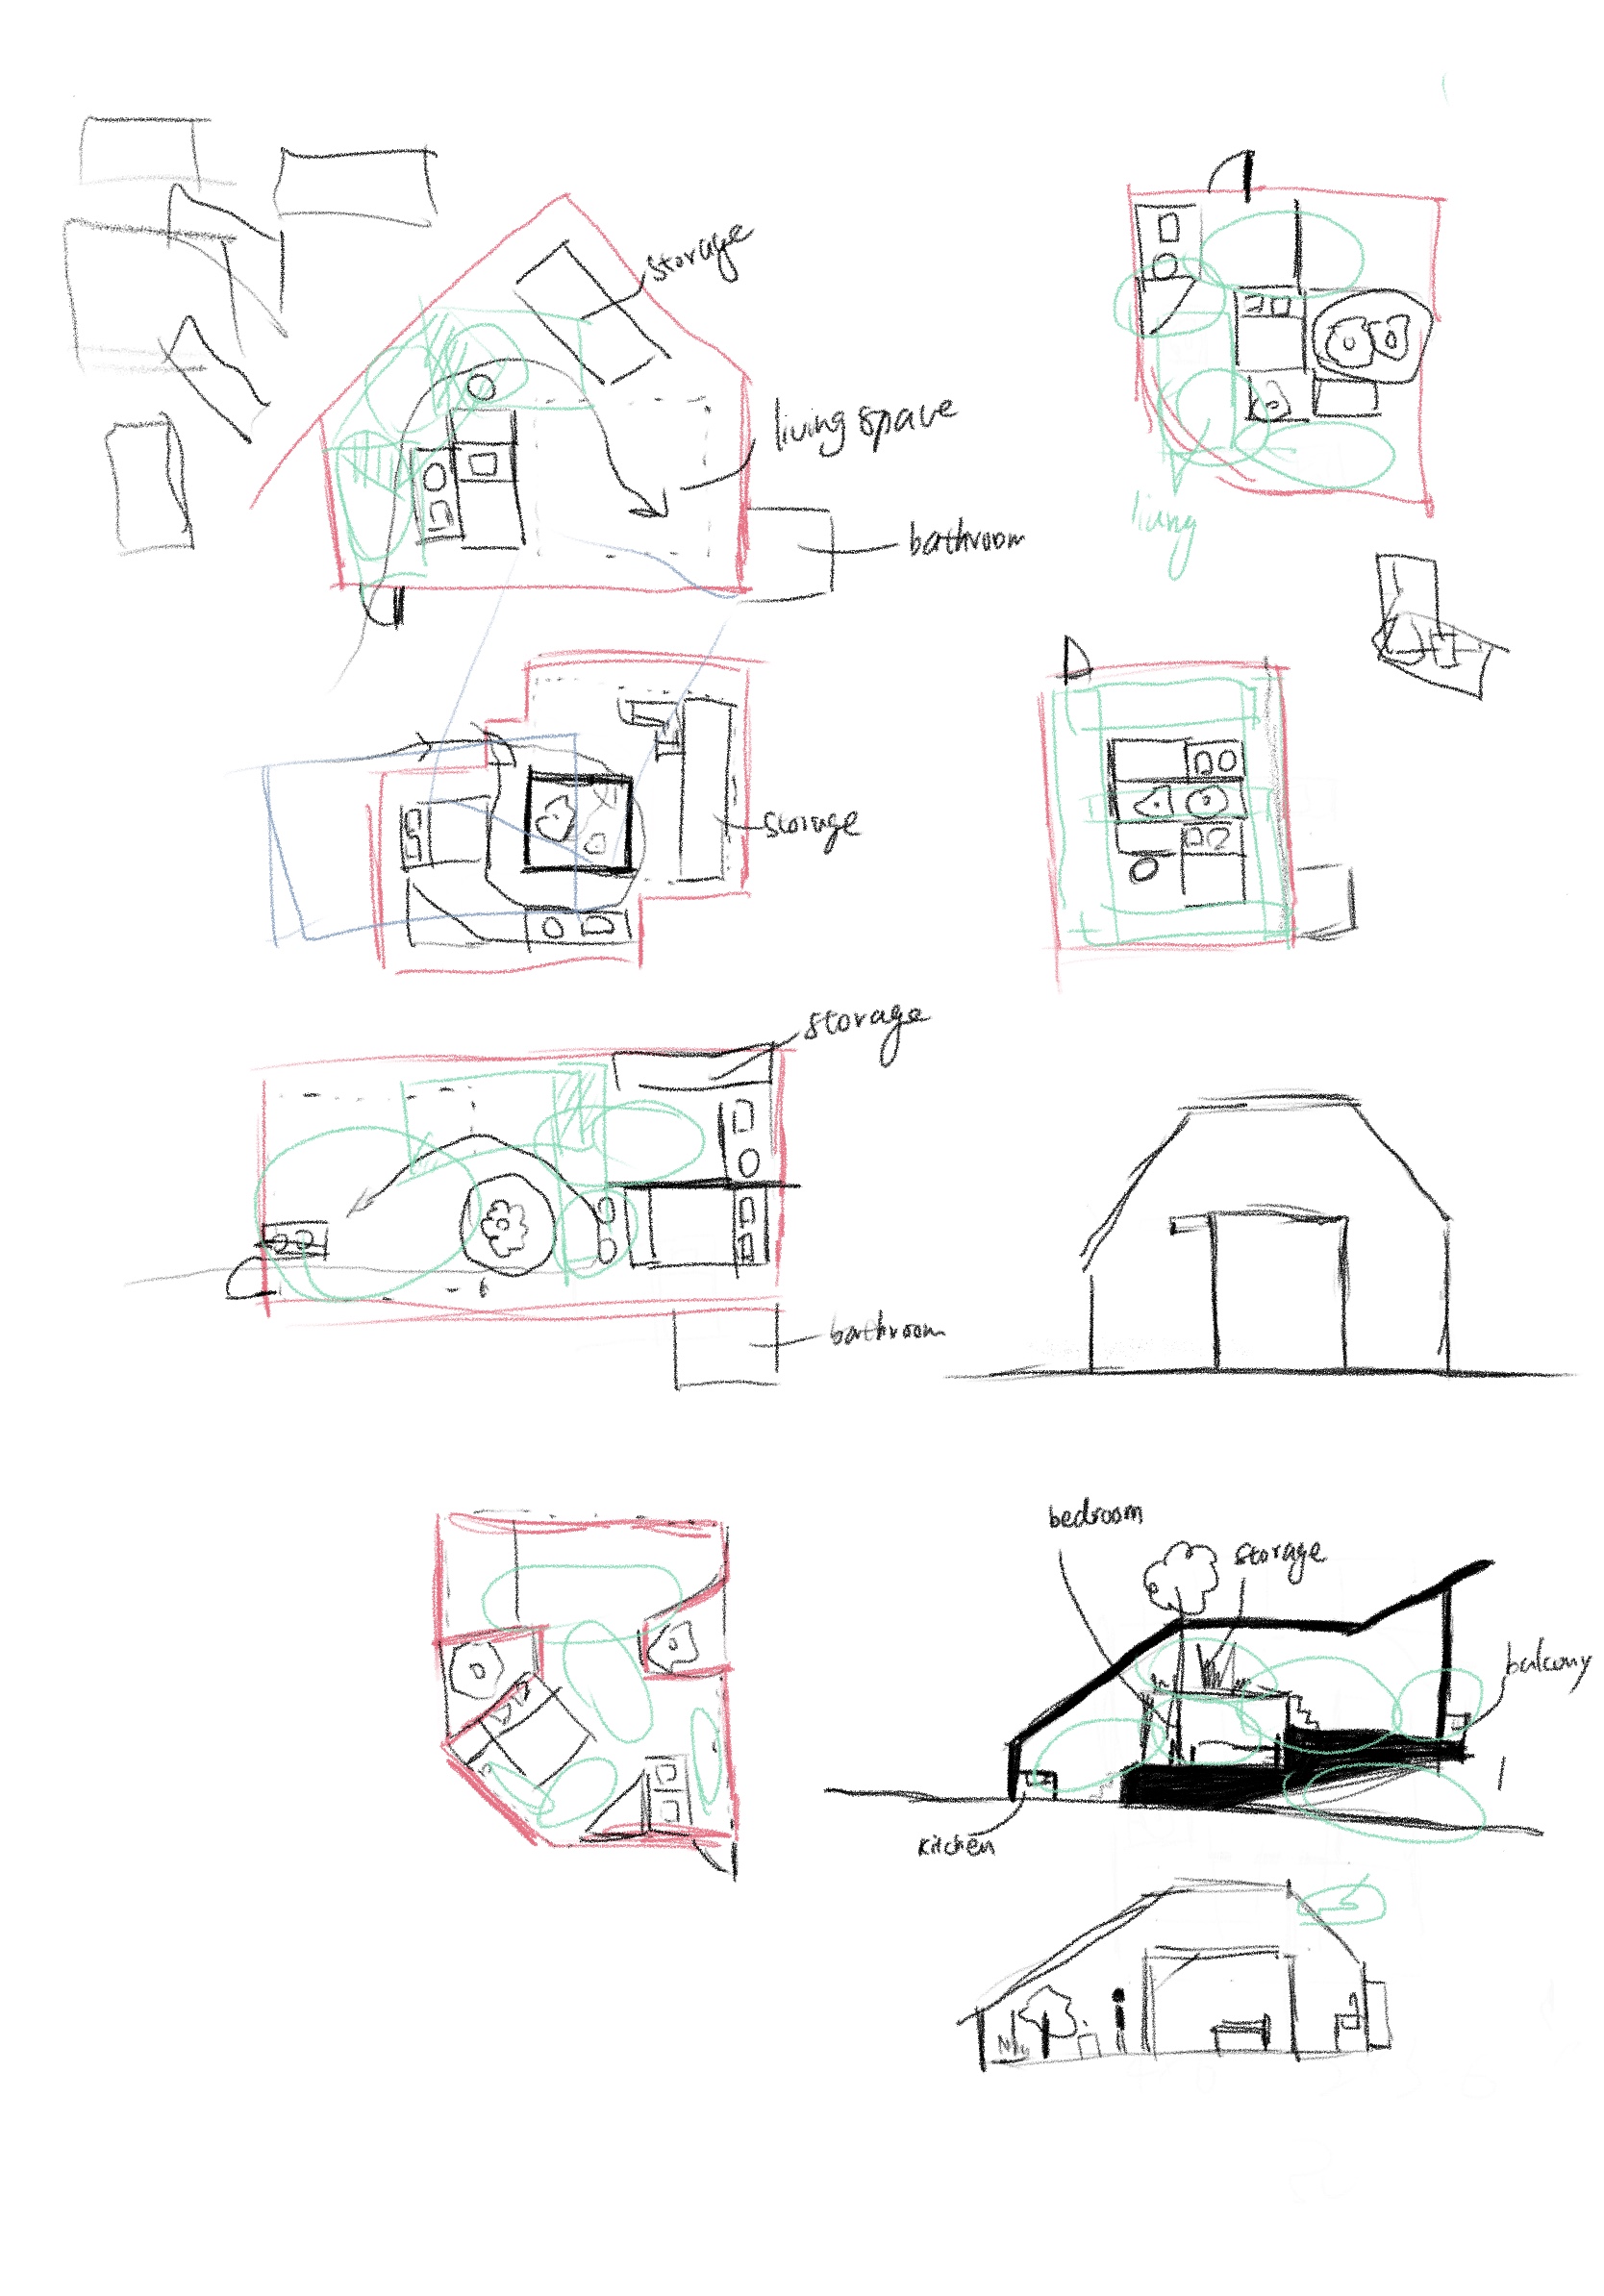 storage
living space
bathroom
living
storage
storage
bathroom
bedroom
storage
balcony
kitchen